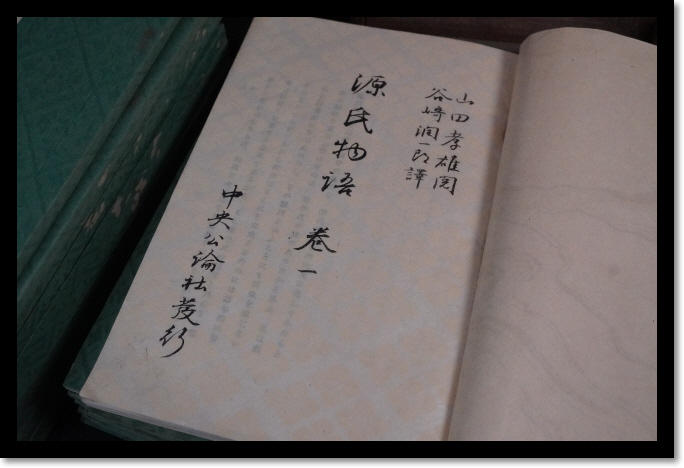 山田孝雄閲
谷崎潤一郎譯
源氏物語 巻一
中央公論社発行